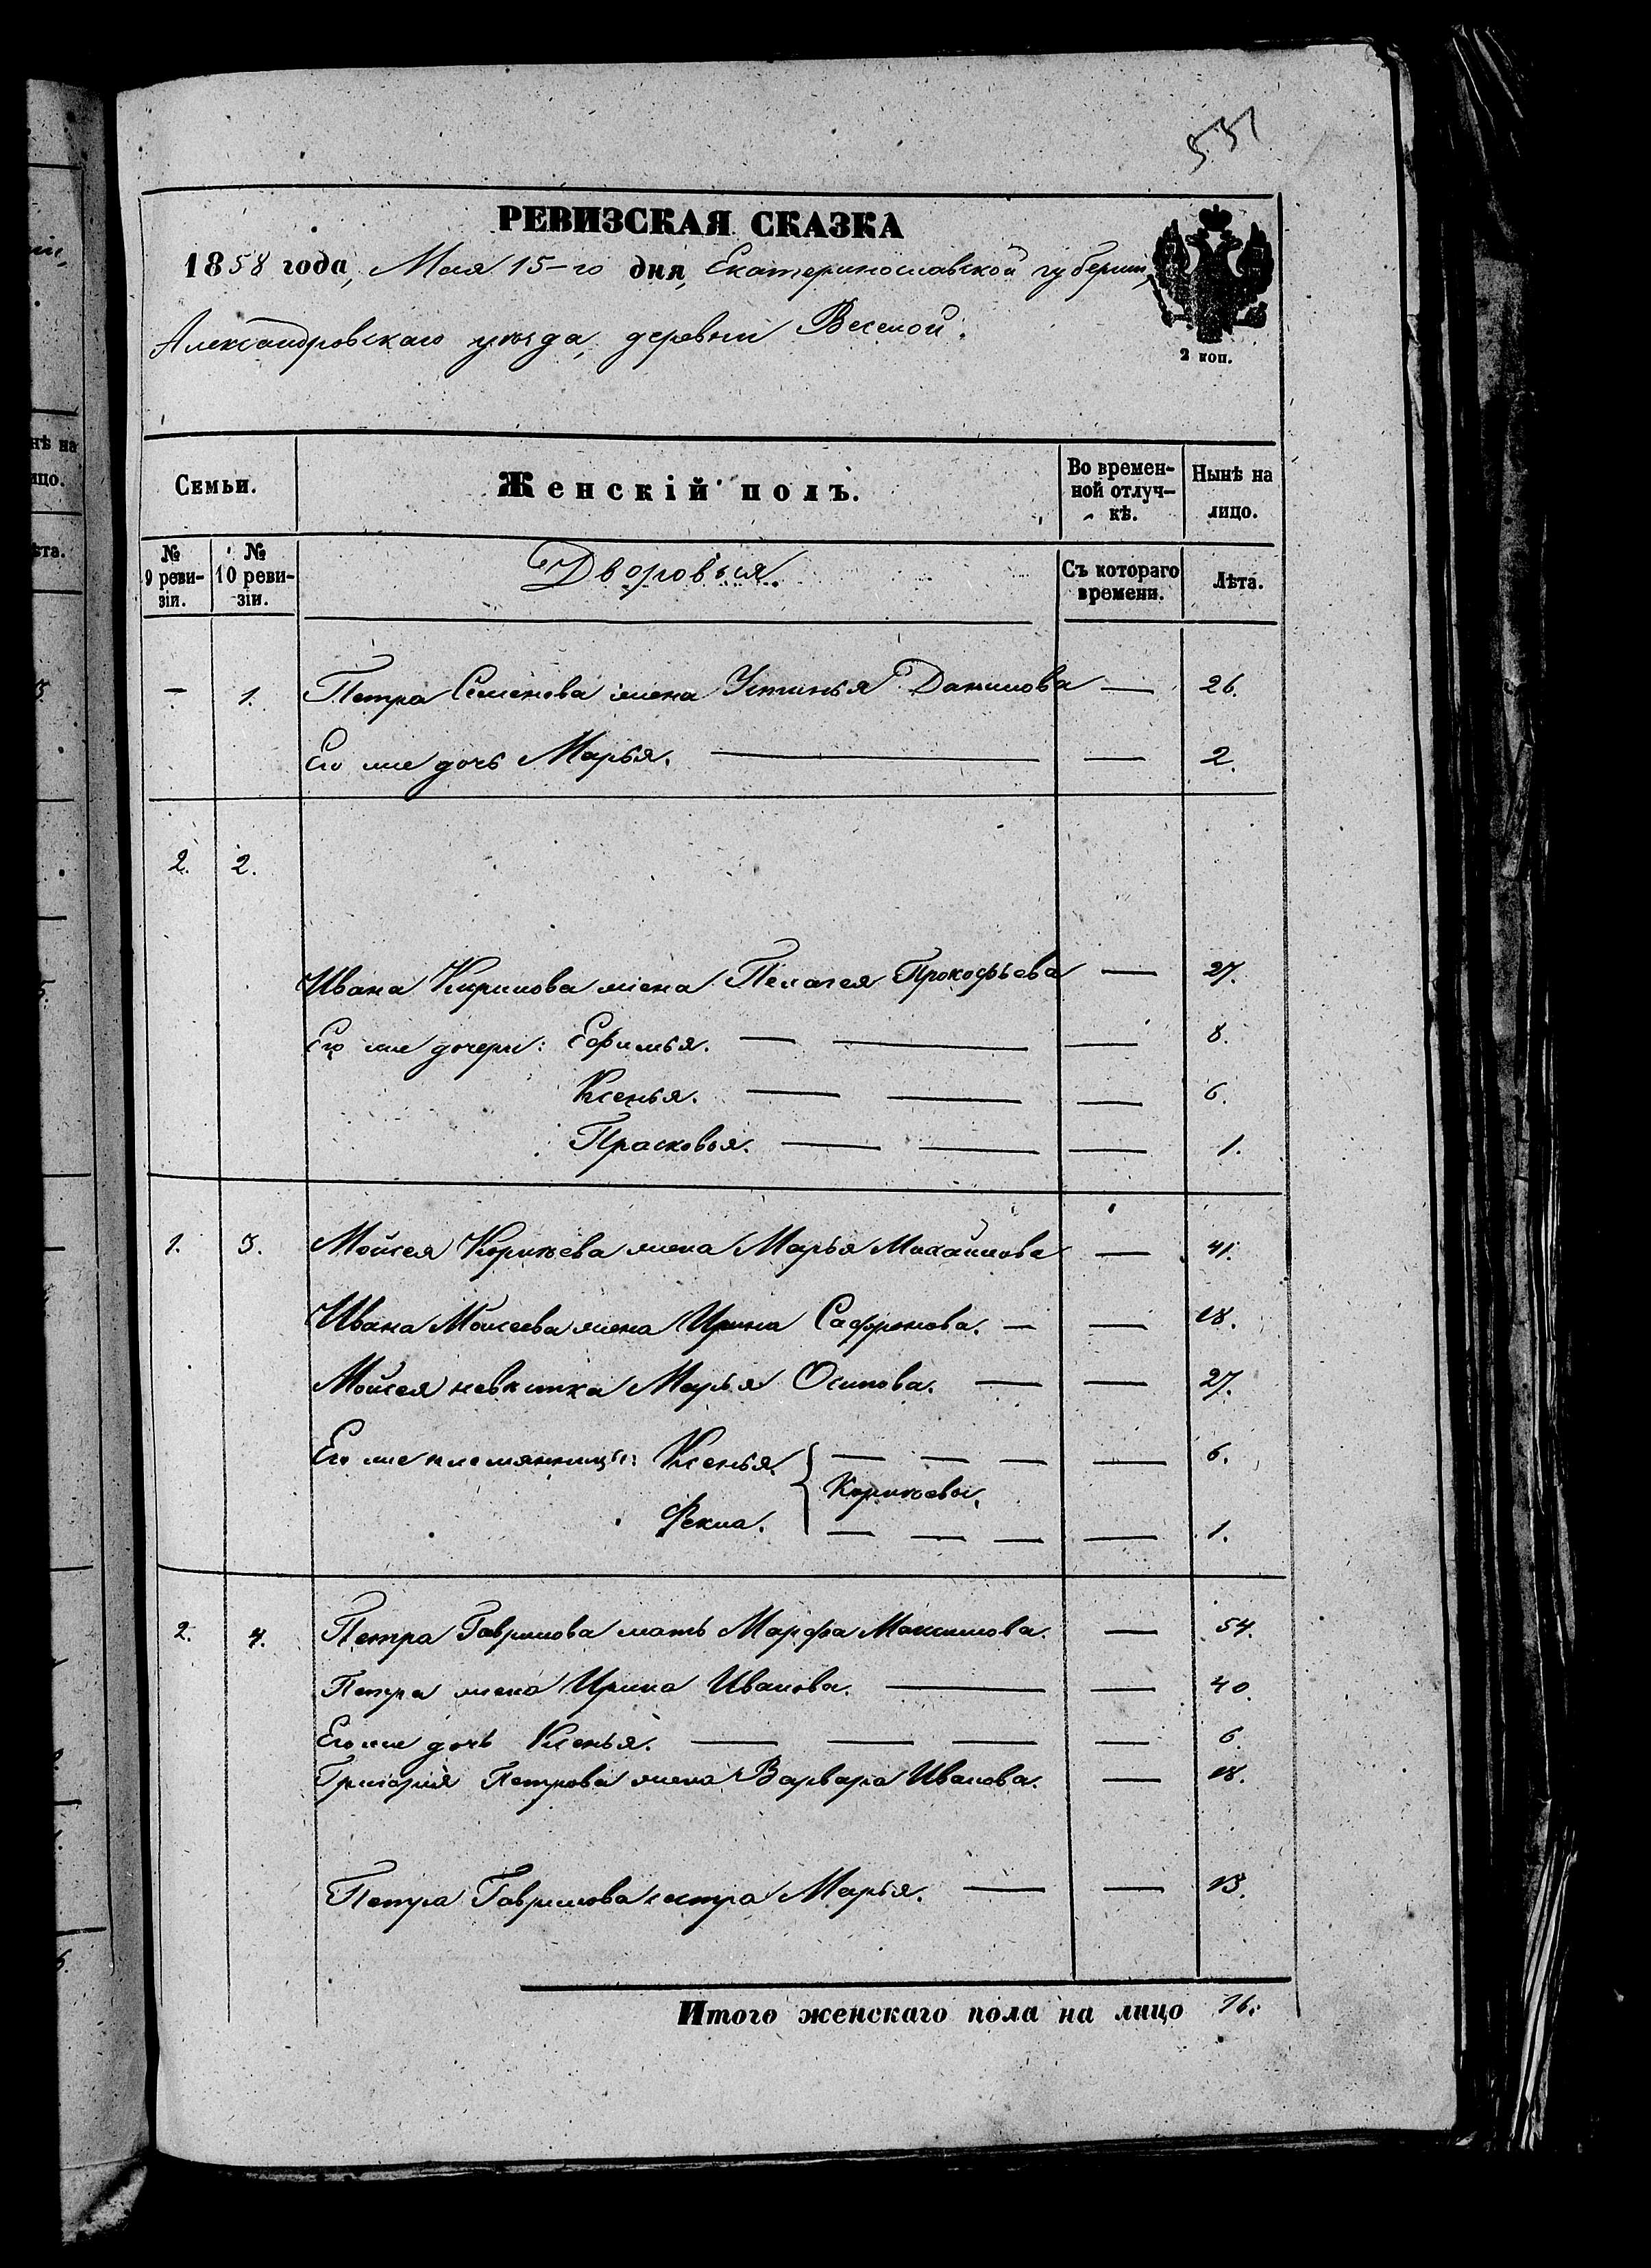 551
РЕВИЗСКАЯ СКАЗКА
1858 года, Мая 15-го дня, Екатеринославской губерніи,
Александровскаго уѣзда, деревни Веселой.
2 коп.
Семьи.
Женскій полъ.
Во времен-
ной отлуч-
кѣ.
Нынѣ на
лицо.
№
9 реви-
зіи.
№
10 реви-
зіи.
Дворовыя.
Съ котораго
времени.
Лѣта.
— 1. Петра Семенова жена Устинья Данилова — 26.
Его же дочь Марья. — — 2.
2. 2.
Ивана Кирилова жена Пелагея Прокофьева — 27.
Его же дочери: Ефимья. — — — 8.
Ксенья. — — — 6.
Прасковья. — — — 1.
1. 3. Мойсея жена Марья Михайлова — 41.
Ивана Моисеева жена Ирина Сафронова. — — 18.
Мойсея невѣстка Марья Осипова. — — 27.
Его же племянницы: Ксенья. — — — — 6.
Фекла. — — — — 1.
2. 4. Петра Гаврилова мать Марфа Максимова. — 54.
Петра жена Ирина Иванова. — — 40.
Его же дочь Ксенья. — — — — 6.
Григорія Петрова жена Варвара Иванова. — 18.
Петра Гаврилова сестра Марья. — — 13.
Итого женскаго пола на лицо 16.